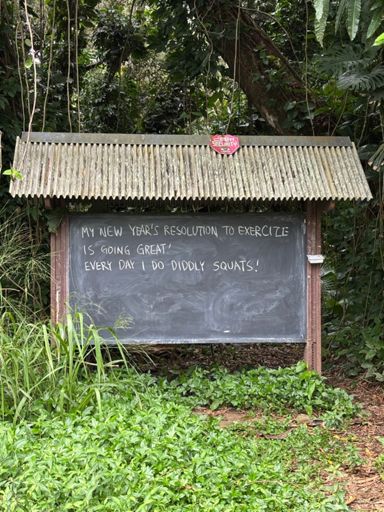 SECURITY
MY NEW YEAR'S RESOLUTION TO EXERCIZE
IS GOING GREAT!
EVERY DAY I DO DIDDLY SQUATS!